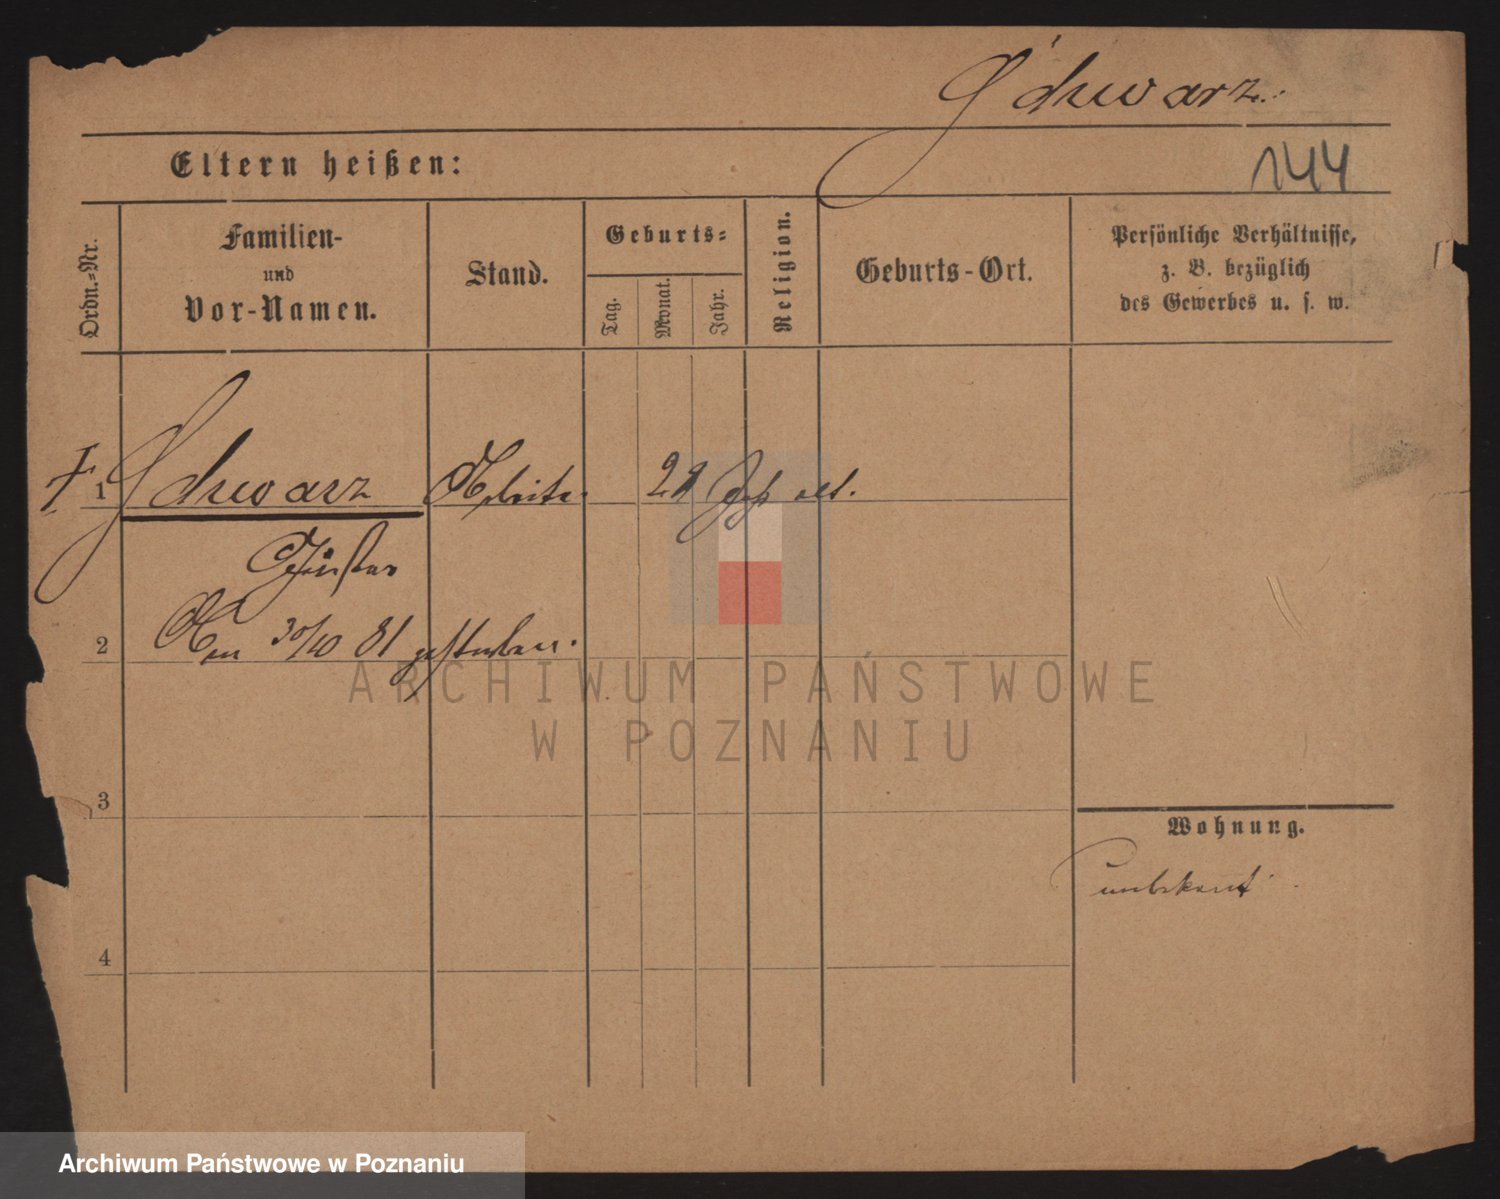 Schwarz.
144
Eltern heißen:
Ordn.-Nr.
Familien-
und
Vor-Namen.
Stand.
Geburts-
Tag.
Monat.
Jahr.
Religion.
Geburts-Ort.
Persönliche Verhältnisse,
z. B. bezüglich
des Gewerbes u. s. w.
1 Schwarz Arbeiter Jahr alt.
Gustav
2 Am 30/10 81 gestorben.
3
4
Wohnung.
unbekant
ARCHIWUM PAŃSTWOWE
W POZNANIU
Archiwum Państwowe w Poznaniu